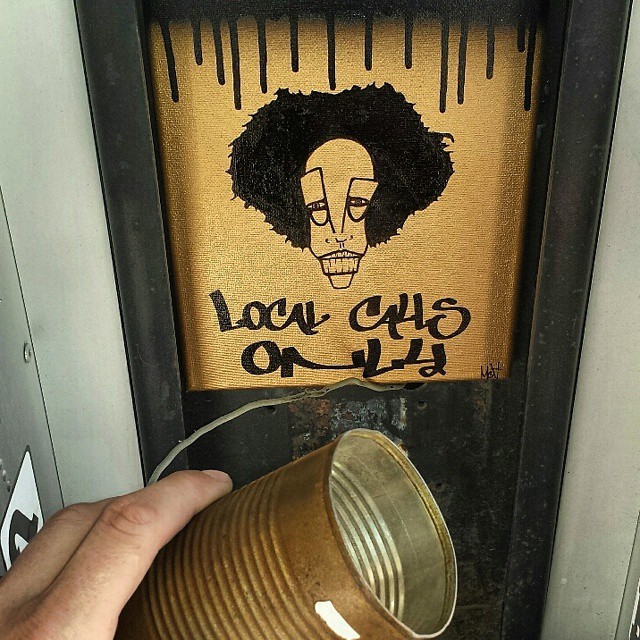 LOCAL CALLS
ONLY